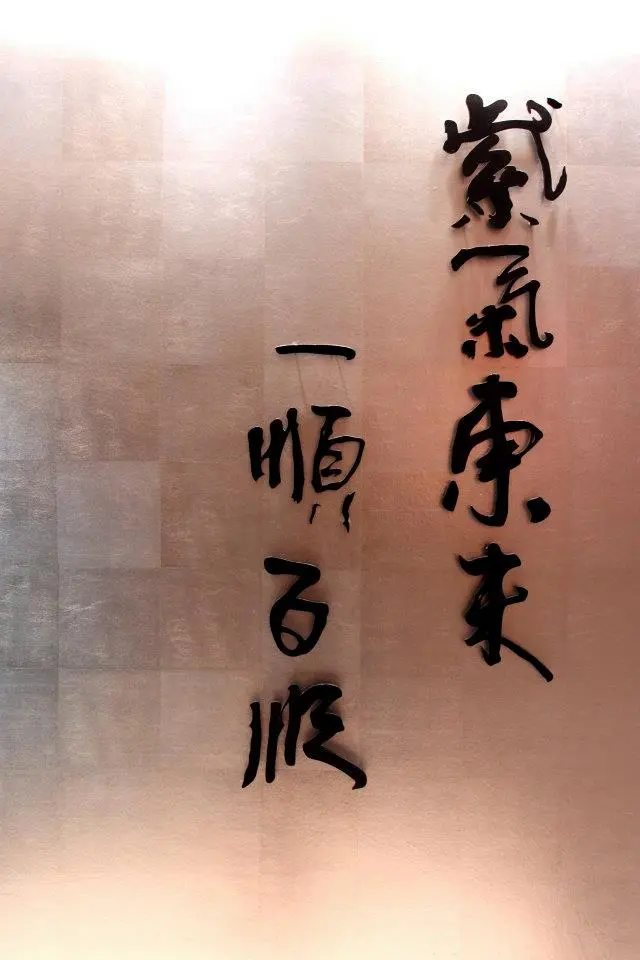 紫氣東來
一順百順